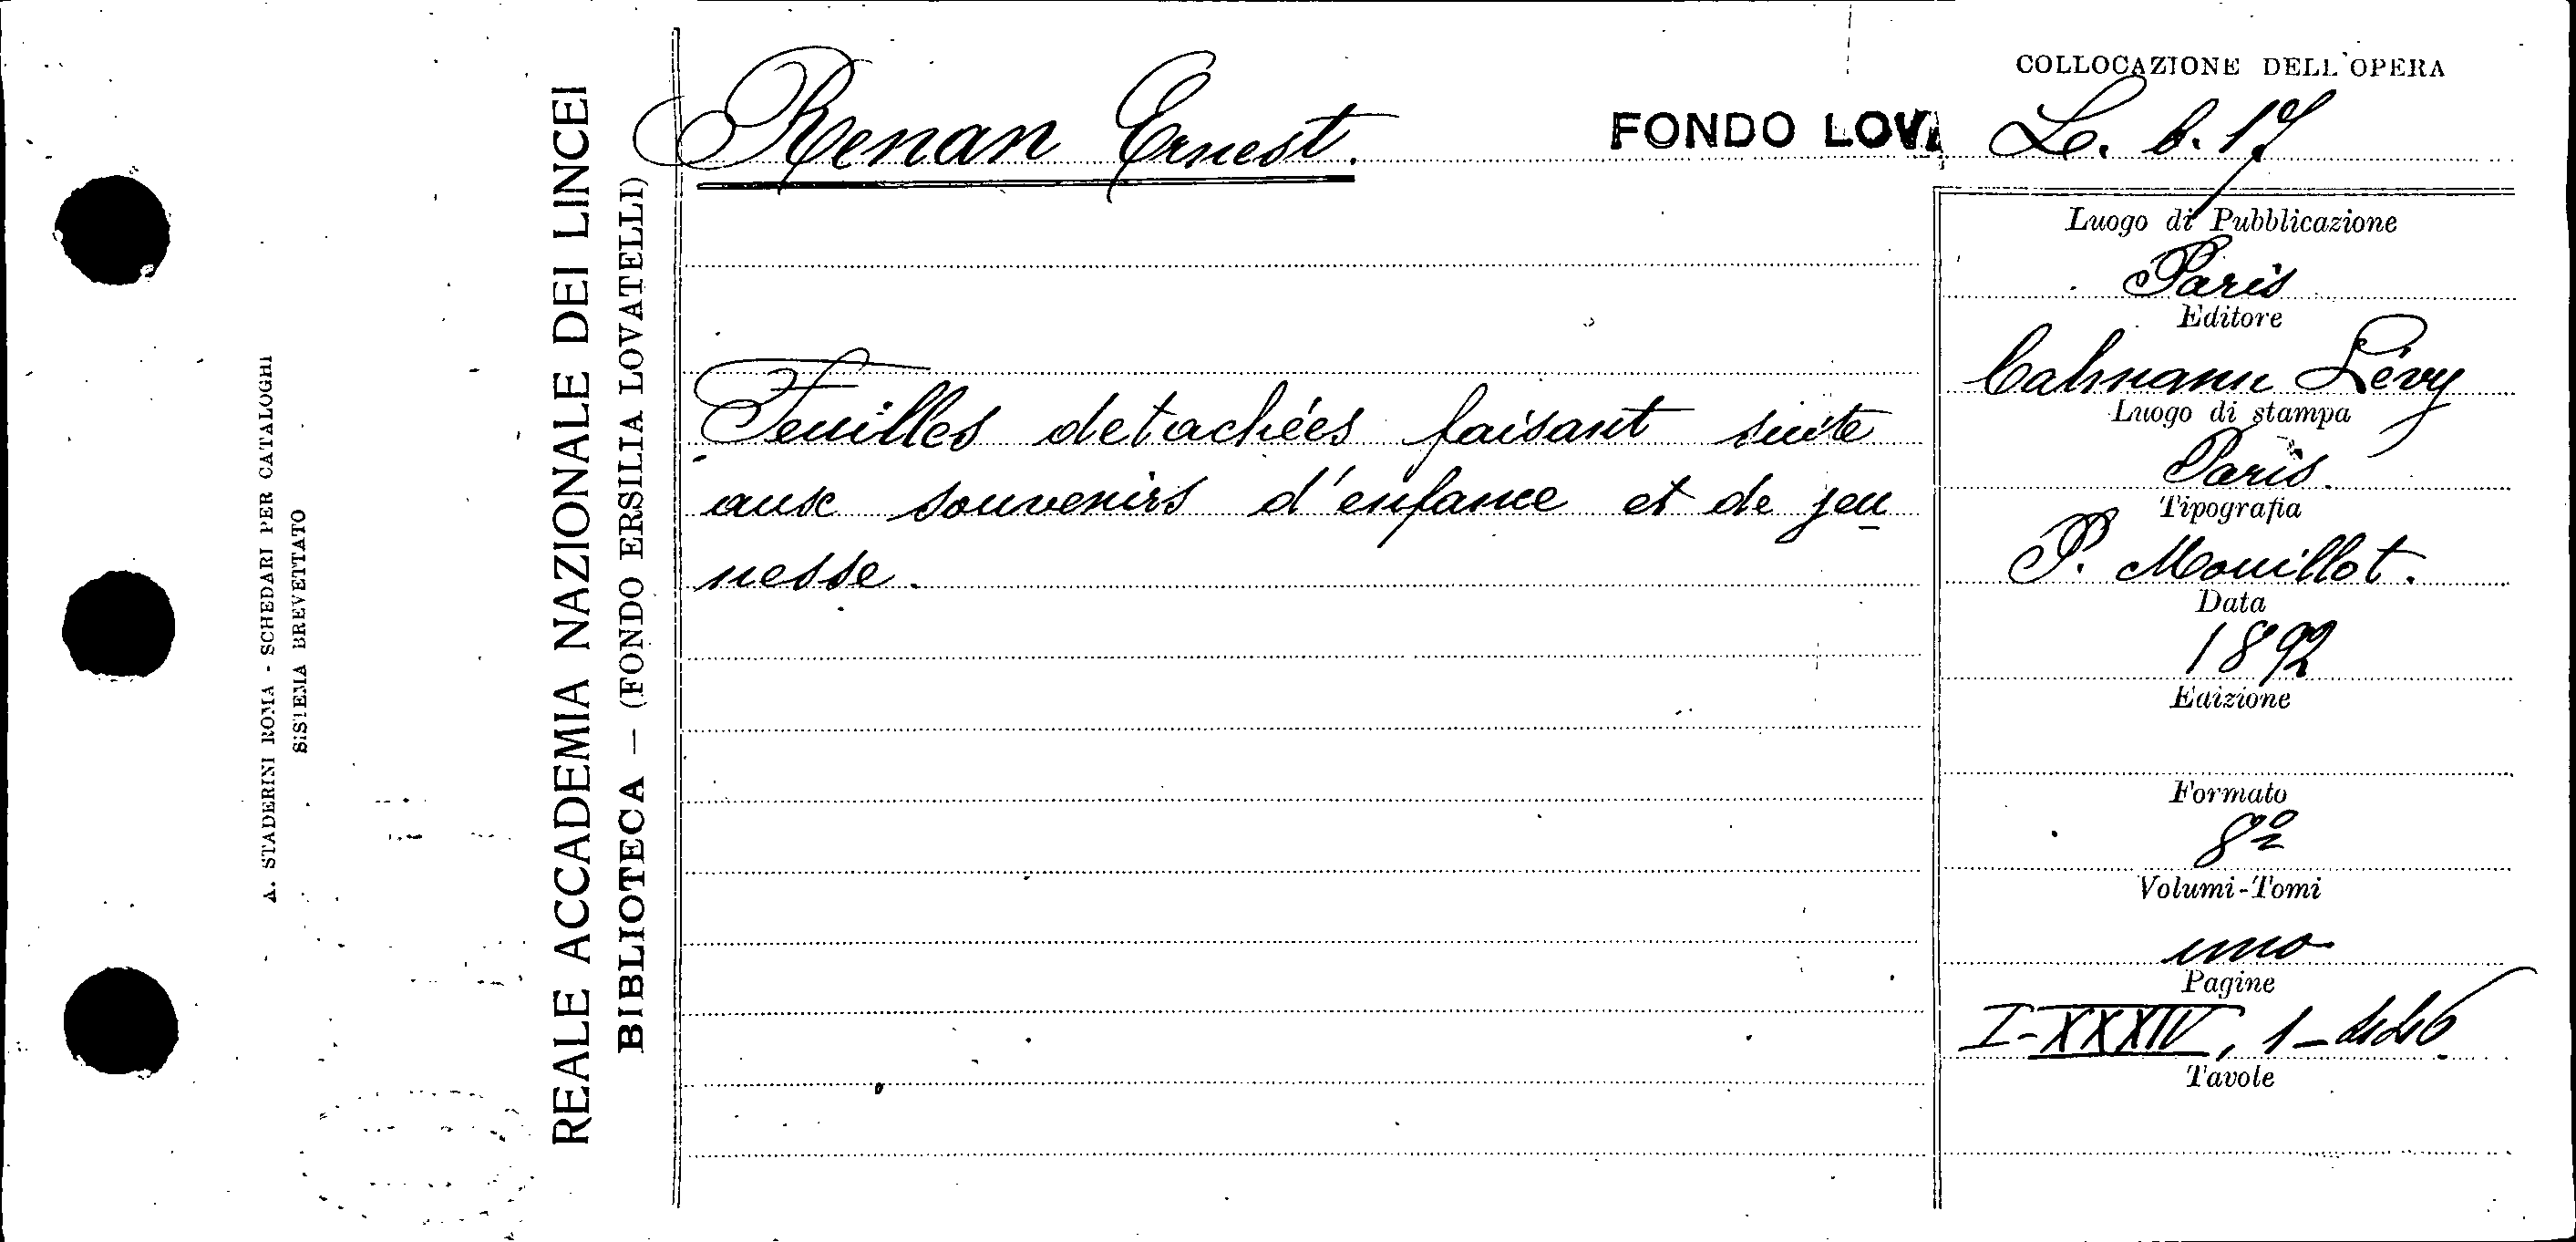 A. STADERINI ROMA - SCHEDARI PER CATALOGHI
SISTEMA BREVETTATO
REALE ACCADEMIA NAZIONALE DEI LINCEI
BIBLIOTECA — (FONDO ERSILIA LOVATELLI)
Renan Ernest.
FONDO LOVA
Feuilles detachées faisant suite
aux souvenirs d'enfance et de jeu
nesse.
COLLOCAZIONE DELL'OPERA
L. b. 17
Luogo di Pubblicazione
Paris
Editore
Calmann Lévy
Luogo di stampa
Paris.
Tipografia
P. Mouillot.
Data
1892
Edizione
Formato
8º
Volumi-Tomi
uno
Pagine
I-XXXIV, 1-446
Tavole